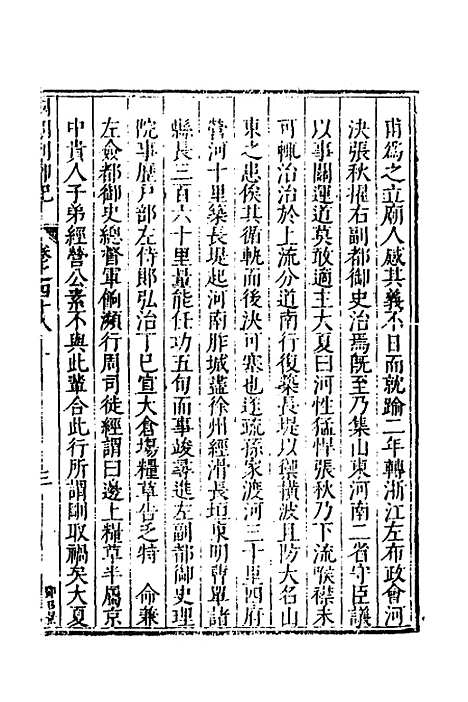 甫爲之立廟人感其義不日而就踰二年轉浙江左布政會河
決張秋擢右副都御史治焉旣至乃集山東河南二省守臣議
以事關運道莫敢適主大夏曰河性猛悍張秋乃下流喉襟未
可輒治治於上流分道南行復築長堤以禦橫波且防大名山
東之患俟其循軌而後決可塞也遂疏孫家渡河三十里四府
營河十里築長堤起河南胙城盡徐州經滑長垣東明曹單諸
縣長三百六十里量能任功五旬而事竣尋進左副都御史理
院事歷戶部左侍郎弘治丁巳宣大倉場糧草告乏特 命兼
左僉都御史總督軍餉瀕行周司徒經謂曰邊上糧草半屬京
中貴人子弟經營公素不與此輩合此行所謂剛取禍矣大夏